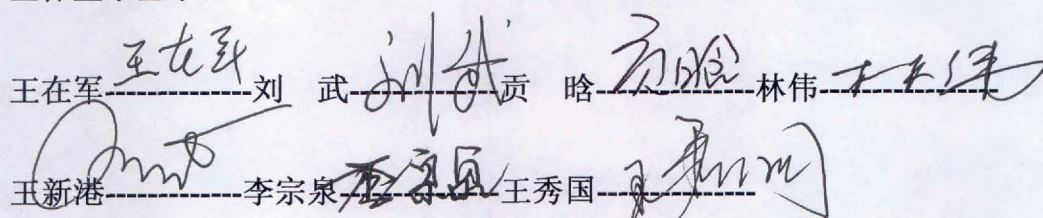 王在军------------王在军刘 武------------刘武贡 晗------------贡晗林伟------------林伟
王新港------------李宗泉------------李宗泉王秀国------------